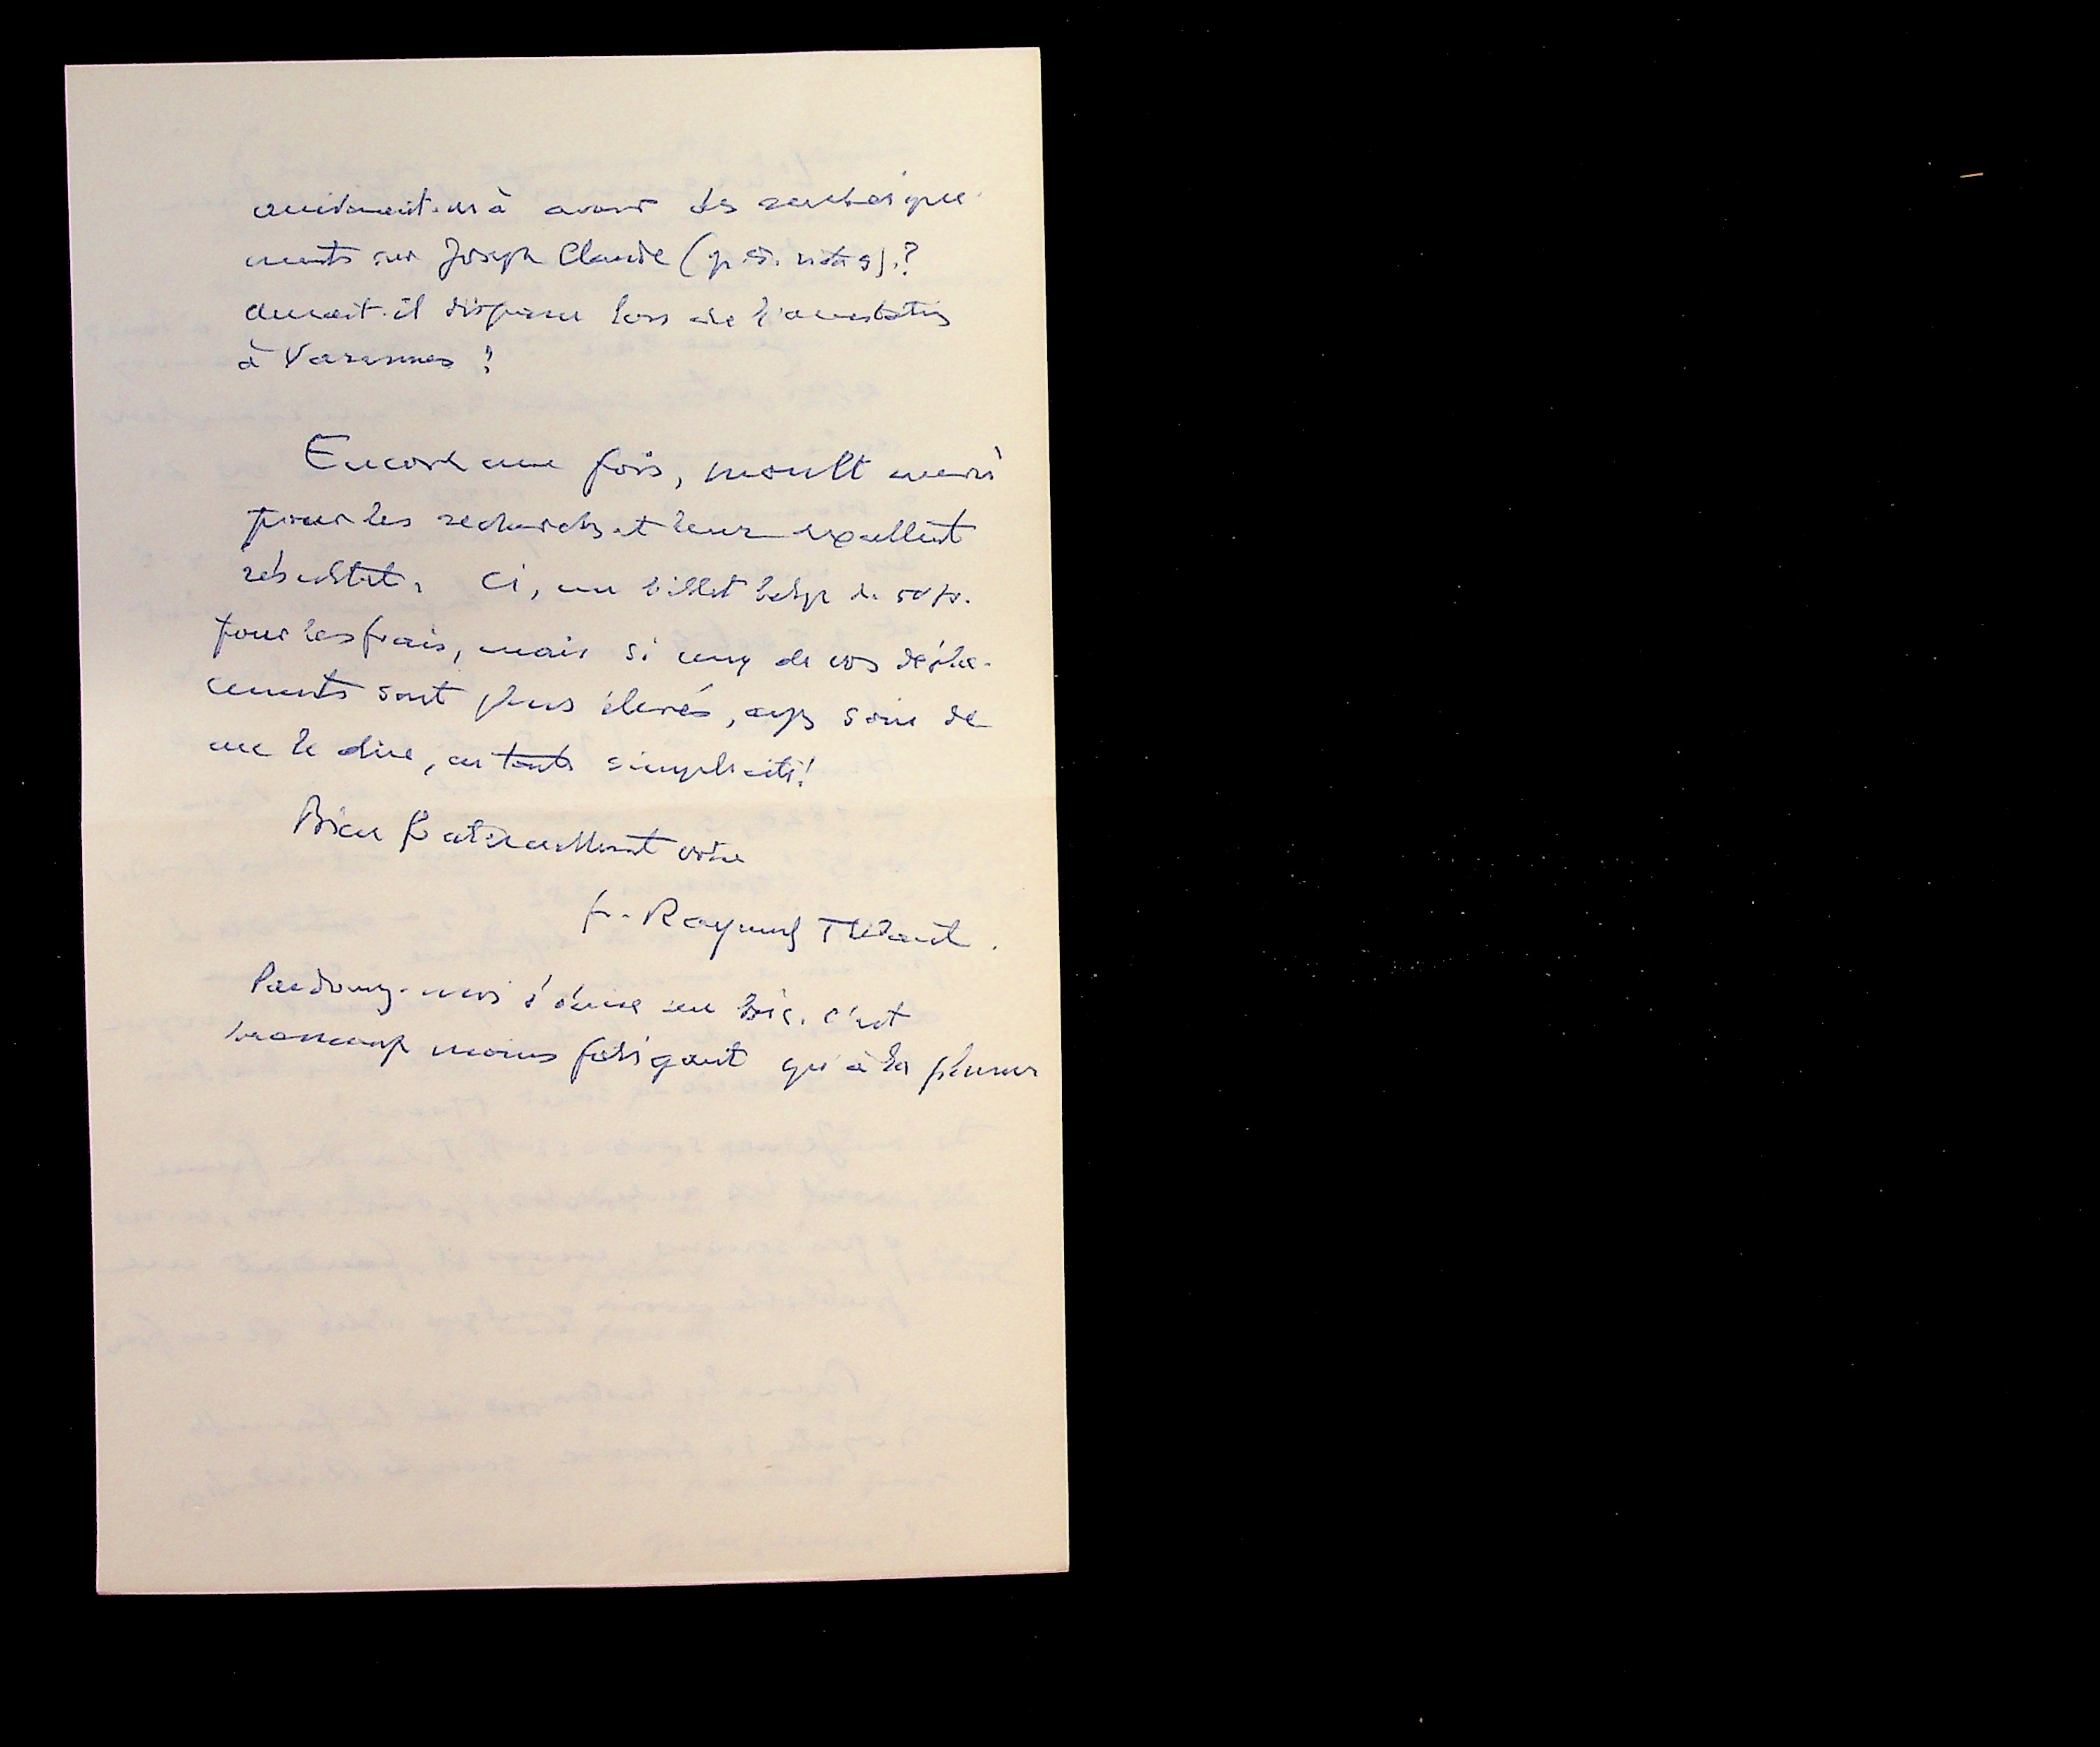 arriverait-on à avoir des renseigne-
ments sur Joseph Claude (p. note 9).?
aurait-il disparu lors de l'arrestation
à Varennes ?
Encore une fois, moult merci
pour les recherches et leur excellent
résultat. Ci, un billet belge de
pour les frais, mais si ceux de vos dépla-
cements sont plus élevés, ayez soin de
me le dire, en toute simplicité!
Bien fraternellement vôtre
fr. Raymond Thibaut.
Pardonnez-moi d'écrire au bic. c'est
beaucoup moins fatigant qu'à la plume